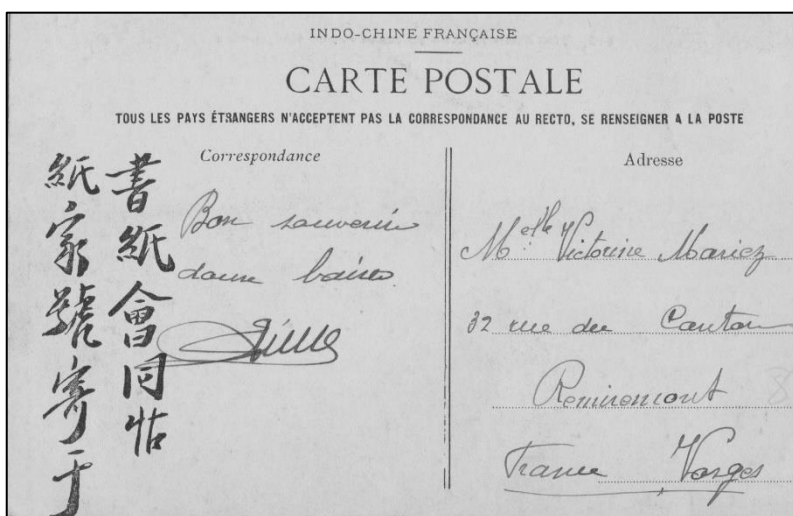 INDO-CHINE FRANÇAISE
CARTE POSTALE
TOUS LES PAYS ÉTRANGERS N'ACCEPTENT PAS LA CORRESPONDANCE AU RECTO, SE RENSEIGNER A LA POSTE
Correspondance
Adresse
書紙會同怗
紙家號寄于
Bon souvenir
doux baiser
Melle Victorine Mariez
32 rue du Canton
Remiremont
France Vosges